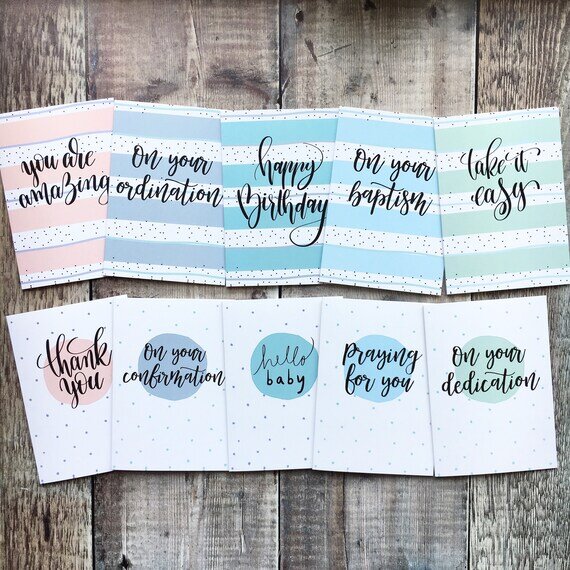 you are
amazing
On your
ordination
happy
Birthday
On your
baptism
take it
easy
thank
you
On your
confirmation
hello
baby
Praying
for you
On your
dedication